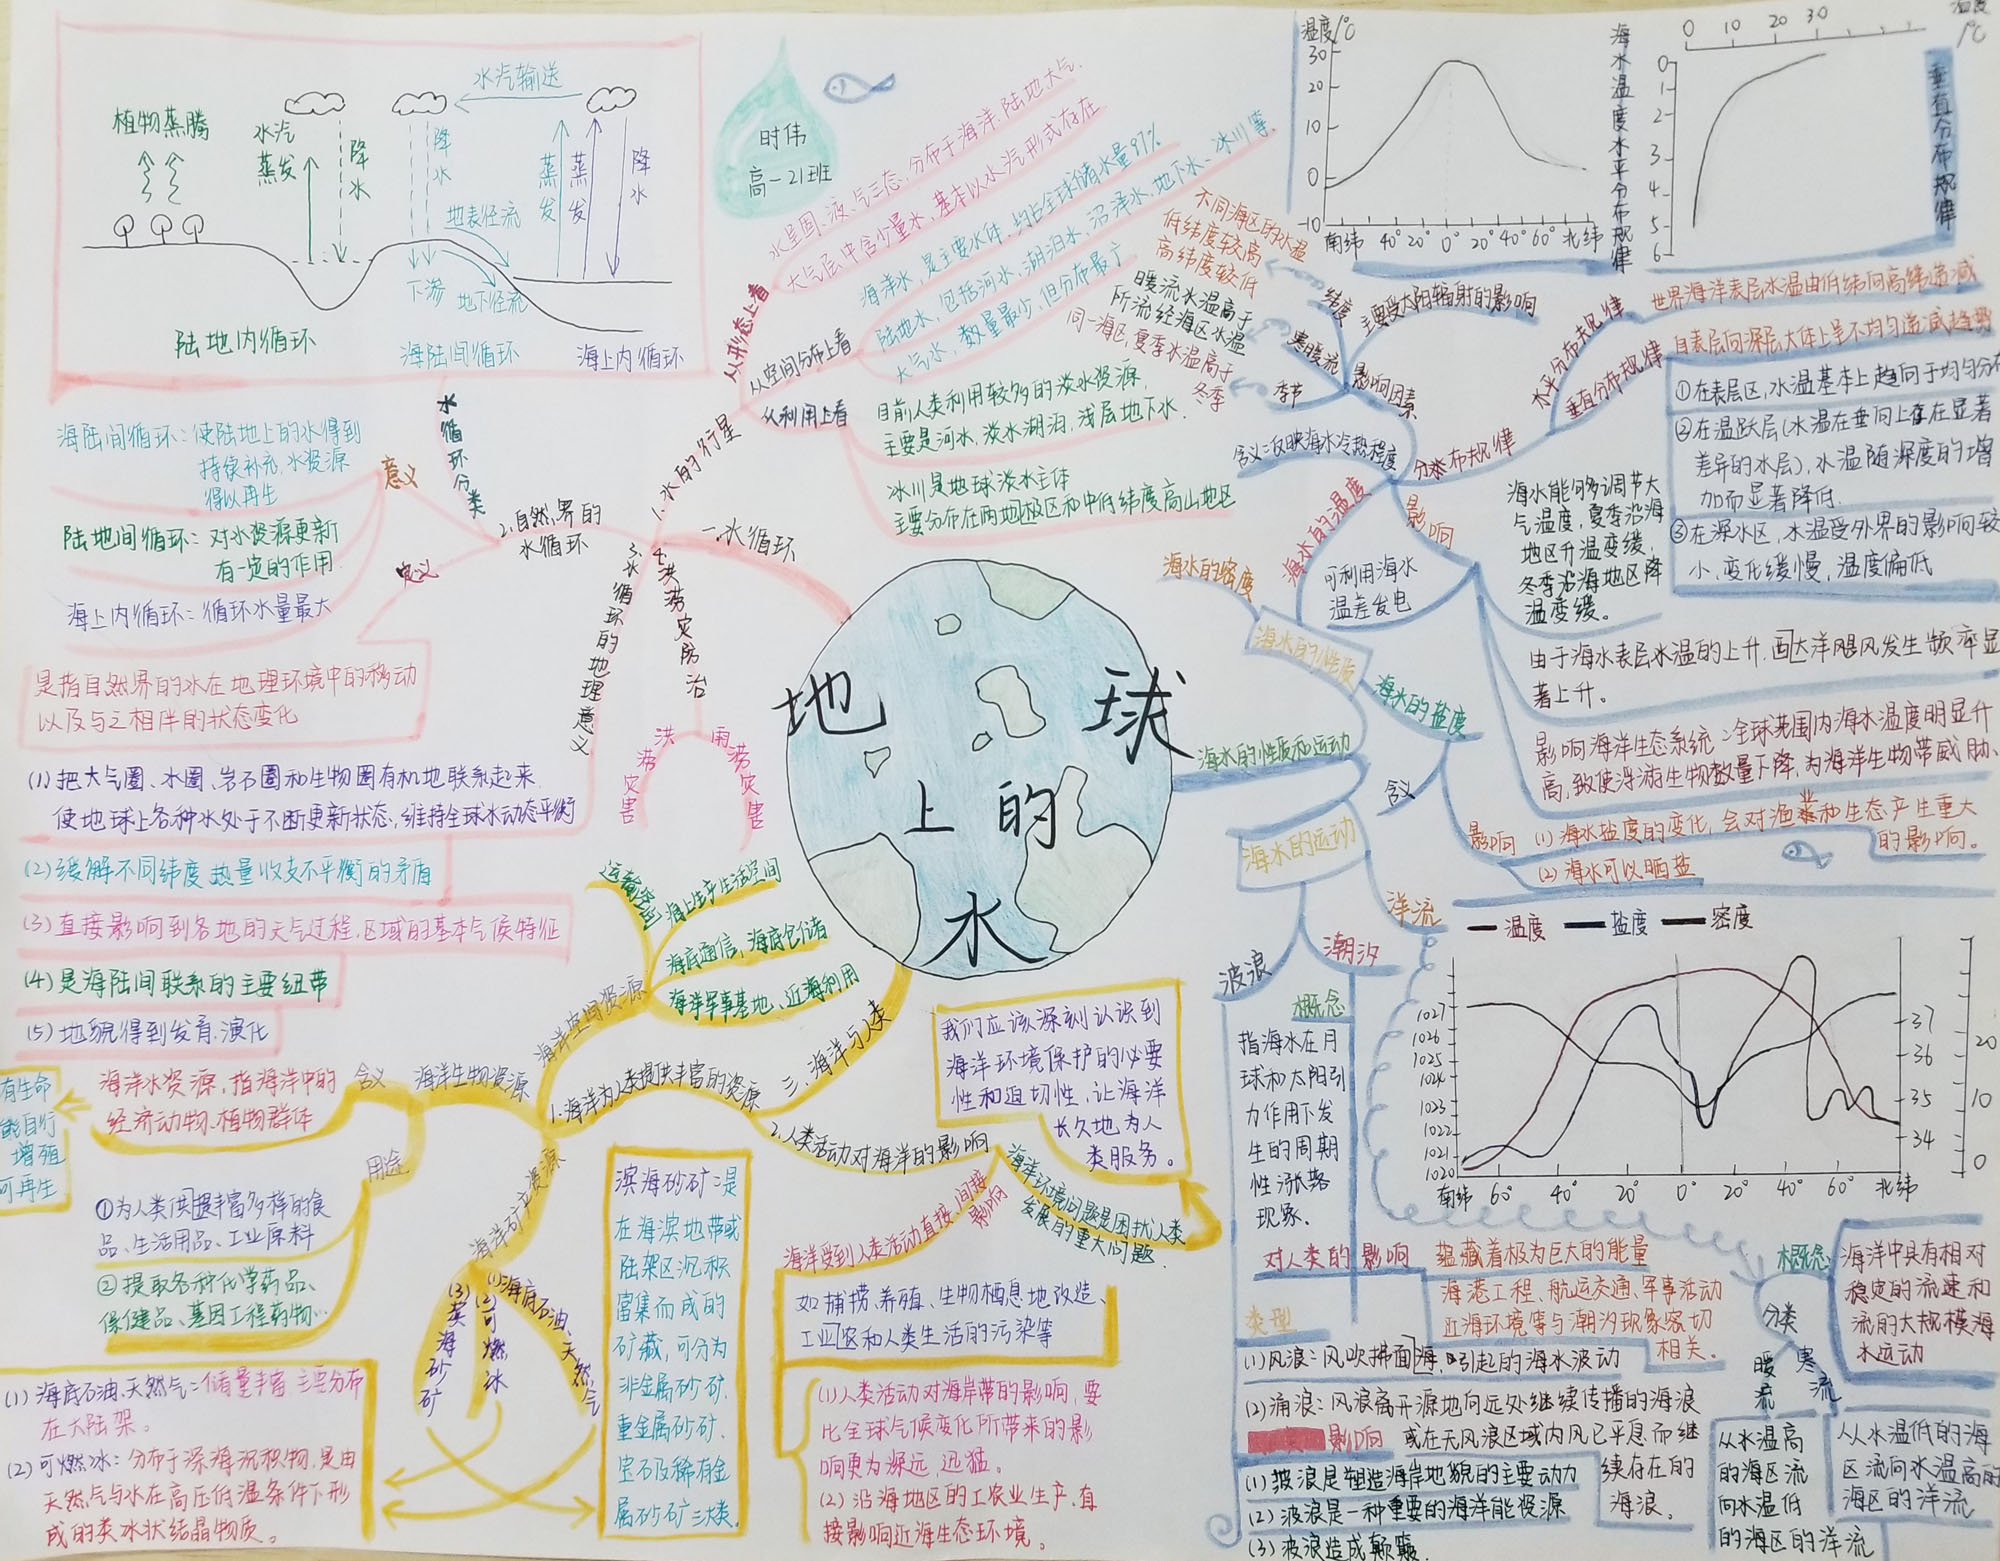 地球
上的
水
时伟
高一21班
水汽输送
植物蒸腾
水汽蒸发
降水
降水
蒸发
蒸发
降水
地表径流
下渗
地下径流
陆地内循环
海陆间循环
海上内循环
一.水循环
1.水的行星
从形态上看
水呈固、液、气三态,分布于海洋、陆地大气.
大气层中含少量水,基本以水汽形式存在
从空间分布上看
海洋水,是主要水体,均占全球储水量97%
陆地水,包括河水、湖泊水、沼泽水、地下水、冰川等.
大气水,数量最少,但分布最广
从利用上看
目前人类利用较多的淡水资源,
主要是河水,淡水湖泊,浅层地下水.
冰川是地球淡水主体
主要分布在两地极区和中低纬度高山地区
2.自然界的
水循环
水循环分类
意义
海陆间循环:使陆地上的水得到
持续补充,水资源
得以再生
陆地间循环:对水资源更新
有一定的作用.
海上内循环:循环水量最大
定义
是指自然界的水在地理环境中的移动
以及与之相伴的状态变化
3.水循环的地理意义
(1)把大气圈、水圈、岩石圈和生物圈有机地联系起来.
使地球上各种水处于不断更新状态,维持全球水动态平衡
(2)缓解不同纬度热量收支不平衡的矛盾
(3)直接影响到各地的天气过程,区域的基本气候特征
(4)是海陆间联系的主要纽带
(5)地貌得到发育.演化
4.洪涝灾防治
洪涝灾害
雨涝灾害
海水的性质和运动
海水的性质
海水的密度
海水的温度
含义:反映海水冷热程度
影响因素
纬度
主要受太阳辐射的影响
不同海区的水温
低纬度较高
高纬度较低
寒暖流
暖流水温高于
所流经海区水温
季节
同一海区,夏季水温高于
冬季
分布规律
水平分布规律
世界海洋表层水温由低纬向高纬递减
垂直分布规律
自表层向深层大体上呈不均匀递减趋势
①在表层区,水温基本上趋向于均匀分布
②在温跃层(水温在垂向上存在显著
差异的水层),水温随深度的增
加而显著降低.
③在深水区,水温受外界的影响较
小,变化缓慢,温度偏低
温度/℃
30
20
10
0
-10
南纬 40° 20° 0° 20° 40° 60° 北纬
海水温度水平分布规律
0 10 20 30
温度/℃
0
1
2
3
4
5
6
垂直分布规律
影响
可利用海水
温差发电
海水能够调节大
气温度,夏季沿海
地区升温变缓,
冬季沿海地区降
温变缓。
由于海水表层水温的上升,西大洋飓风发生频率显
著上升。
影响海洋生态系统:全球范围内海水温度明显升
高,致使浮游生物数量下降,为海洋生物带威胁.
海水的盐度
含义
影响
(1)海水盐度的变化,会对渔业和生态产生重大
的影响。
(2)海水可以晒盐
温度 盐度 密度
1027
1026
1025
1024
1023
1022
1021
1020
37
36
35
34
20
10
0
南纬 60° 40° 20° 0° 20° 40° 60° 北纬
海水的运动
波浪
潮汐
洋流
概念
指海水在月
球和太阳引
力作用下发
生的周期
性涨落
现象.
对人类的影响
蕴藏着极为巨大的能量
海港工程、航运交通、军事活动
近海环境等与潮汐现象密切
相关.
类型
(1)风浪:风吹拂面海,引起的海水波动
(2)涌浪:风浪离开源地向远处继续传播的海浪
或在无风浪区域内风已平息而继
续存在的
海浪。
影响
(1)披浪是塑造海岸地貌的主要动力
(2)波浪是一种重要的海洋能资源
(3)波浪造成颠簸.
概念:
海洋中具有相对
稳定的流速和
流的大规模海
水运动
分类
暖流
寒流
从水温高
的海区流
向水温低
的海区的洋流
从水温低的海
区流向水温高的
海区的洋流
三.海洋与人类
1.海洋为人类提供丰富的资源
海洋空间资源
运输空间
海上生产生活空间
海底通信,海底仓储
海洋军事基地、近海利用
海洋生物资源
含义
海洋水资源,指海洋中的
经济动物.植物群体
有生命
能自行
增殖
可再生
用途
①为人类供提丰富多样的食
品、生活用品、工业原料
②提取各种化学药品、
保健品、基因工程药物…
海洋矿产资源
(1)海底石油、天然气
(2)可燃冰
(3)滨海砂矿
(1)海底石油.天然气:储量丰富 主要分布
在大陆架。
(2)可燃冰:分布于深海沉积物,是由
天然气与水在高压低温条件下形
成的类冰状结晶物质。
滨海砂矿:是
在海滨地带或
陆架区沉积
富集而成的
矿藏,可分为
非金属砂矿.
重金属砂矿.
宝石及稀有金
属砂矿三大类.
2.人类活动对海洋的影响
海洋受到人类活动直接、间接
影响
如捕捞、养殖、生物栖息地改造、
工业农和人类生活的污染等
(1)人类活动对海岸带的影响,要
比全球气候变化所带来的影
响更为深远,迅猛。
(2)沿海地区的工农业生产,直
接影响近海生态环境。
海洋环境问题是困扰人类
发展的重大问题.
我们应该深刻认识到
海洋环境保护的必要
性和迫切性,让海洋
长久地为人
类服务。